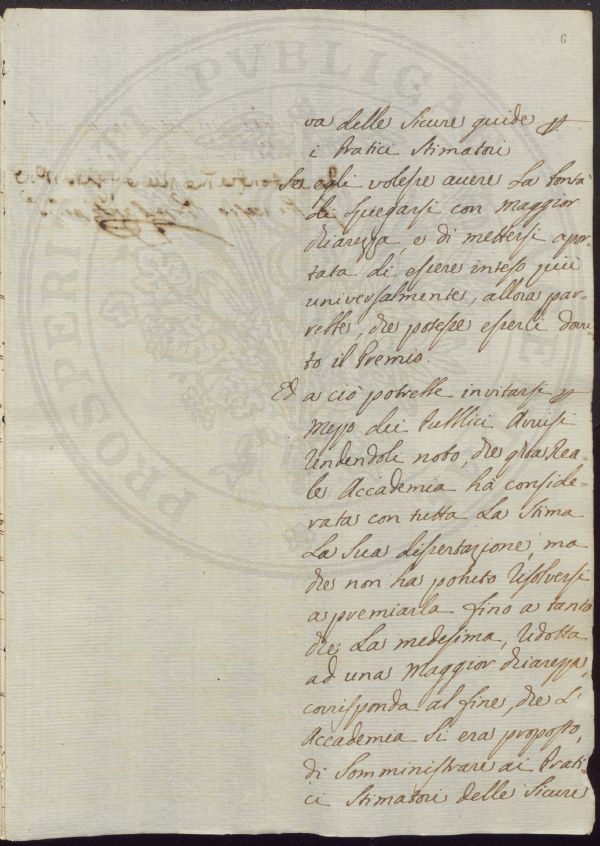 6
va delle Sicure guide p
i Pratici Stimatori
Se egli volesse avere La bontà
di spiegarsi con maggior
chiarezza, e di mettersi apor-
tata di essere inteso più
universalmente, allora par-
rebbe, che potesse esserli dovu-
to il Premio.
Ed a ciò potrebbe invitarsi p
Mezzo dei Pubblici Avvisi
Rendendole noto, che qsta Rea-
le Accademia hà conside-
rata con tutta La Stima
La Sua dissertazione, ma
che non ha potuto risolversi
a premiarla fino a tanto
che La medesima, ridotta
ad una Maggior chiarezza,
corrisponda al fine, che L'
Accademia Si era proposto,
di Somministrare ai Prati-
ci Stimatori delle Sicure
PROSPERITATI PVBLICAE